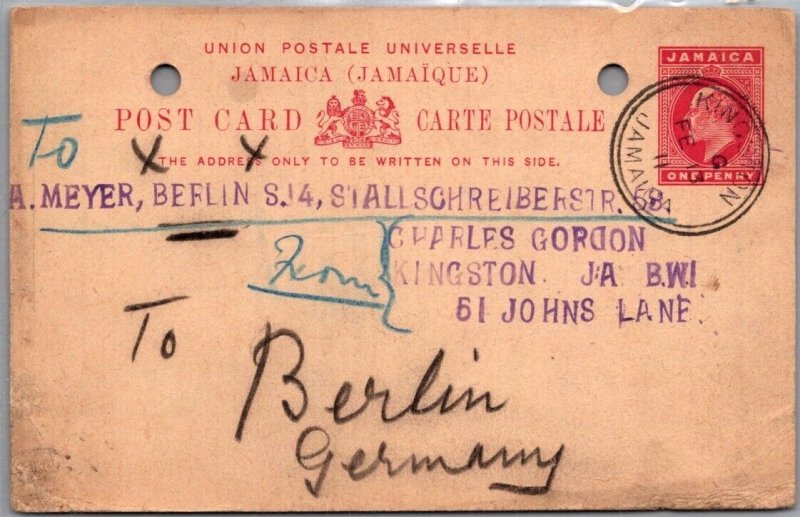 UNION POSTALE UNIVERSELLE
JAMAICA (JAMAÏQUE)
POST CARD CARTE POSTALE
THE ADDRESS ONLY TO BE WRITTEN ON THIS SIDE.
JAMAICA
ONE PENNY
KINGSTON
JAMAICA
To
X X
A. MEYER, BERLIN S.14, STALLSCHREIBERSTR.
From
CHARLES GORDON
KINGSTON J.A B.W.I
61 JOHNS LANE.
To
Berlin
Germany